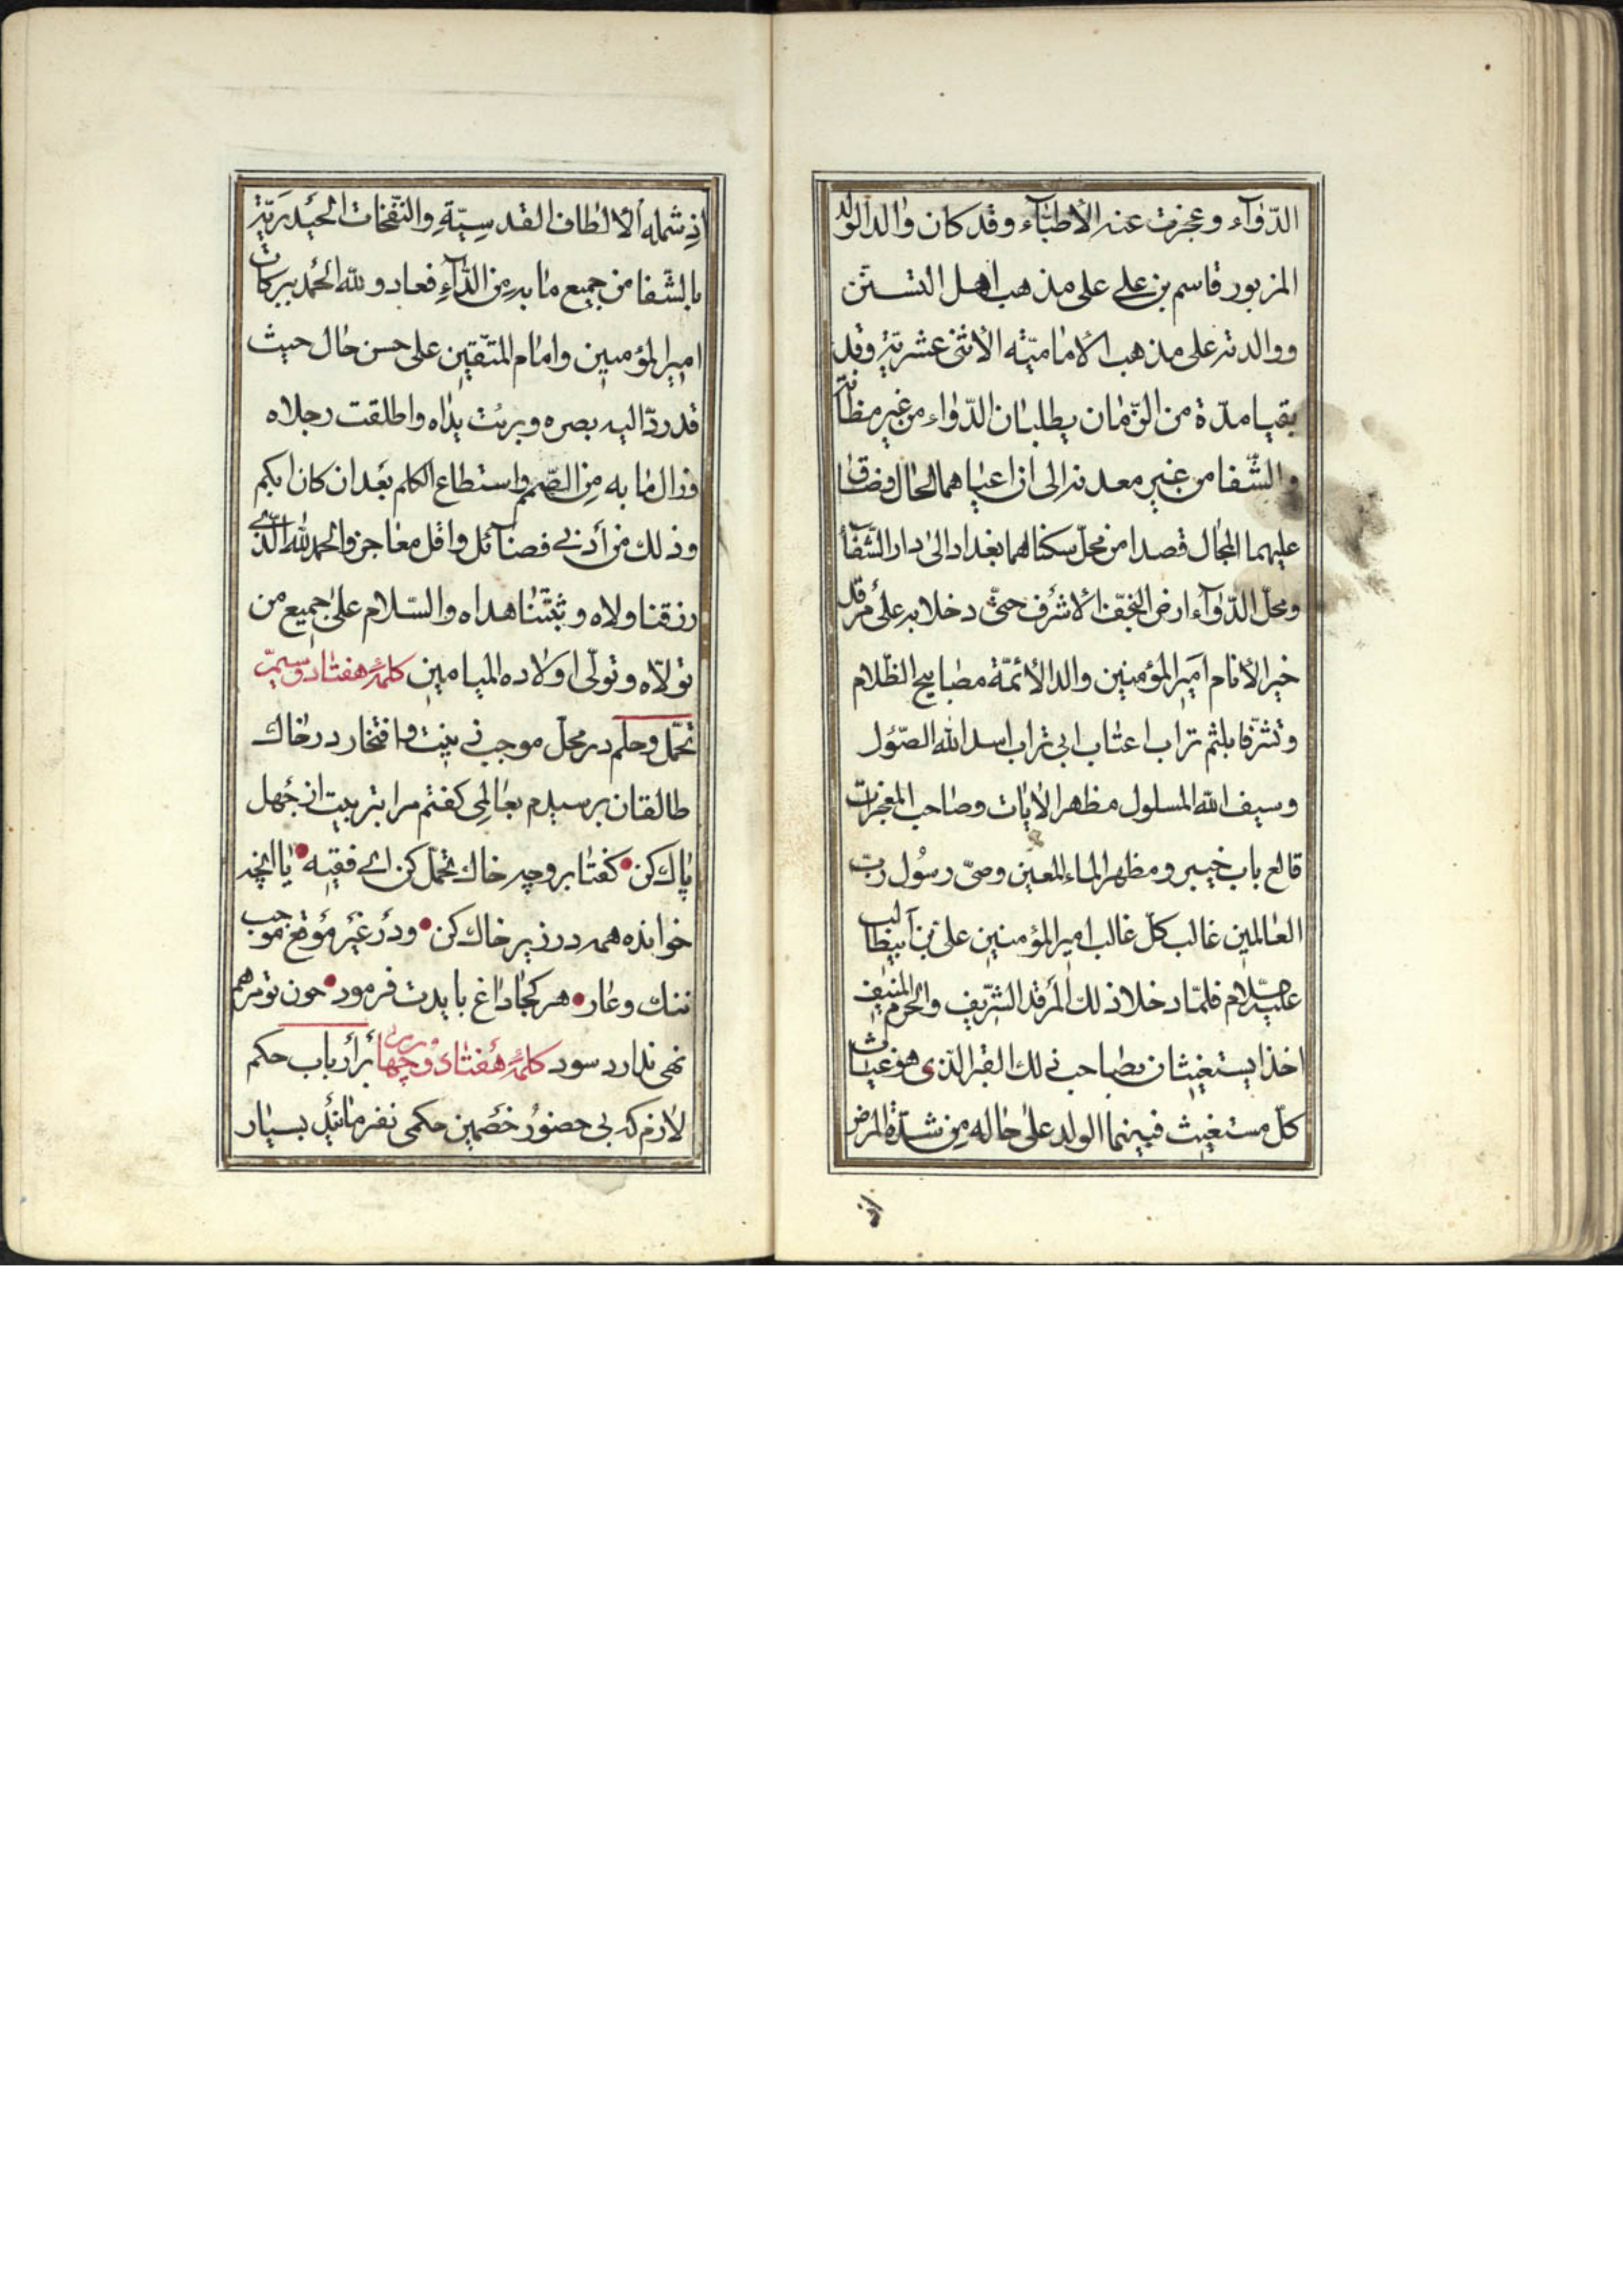 الدّوآء وعجزت عنه الأطبّآء وقد كان والد الولد
المزبور قاسم بن علي على مذهب اهل التسنّن
ووالدته على مذهب الاماميّه الاثنى عشريّة وقد
بقيا مدّة من الزّمان يطلبان الدّواء من غير مظانّه
والشّفا من غير معدنه الى ان اعياهما الحال وضاق
عليهما المجال قصدا من محلّ سكناهما بغداد الى دار الشّفا
ومحلّ الدّوآء ارض النجف الاشرف حتّى دخلا به على مرقد
خير الأنام امير المؤمنين والد الأئمّة مصابيح الظّلام
وتشرّفا بلثم تراب اعتاب ابى تراب اسد الله الصّؤل
وسيف الله المسلول مظهر الايات وصاحب المعجزات
قالع باب خيبر ومظهر الماء المعين وصىّ رسُول ربّ
العالمين غالب كلّ غالب امير المؤمنين على بن ابيطالب
عليه السّلام فلمّا دخلا ذلك المرقد الشّريف والحرم المنيف
اخذا يستغيثان بصاحب ذلك القبر الّذى هو غياث
كلّ مستغيث فبينما الولد على حاله من شدّة المرض
اذ
اذ شمله الالطاف القدسيّة والنّفخات الحيدريّة
بالشّفا من جميع ما به من الدّآء فعاد ولله الحمد ببركات
امير المؤمنين وامام المتّقين على حسن حال حيث
قد ردّ اليه بصره وبرئت يداه واطلقت رجلاه
وزال ما به من الصّمم واستطاع الكلم بعد ان كان ابكم
وذلك من أدنى فضآئل واقل معاجز والحمد لله الّذى
رزقنا ولاه وثبّتنا هداه والسّلام على جميع من
تولّاه وتولّى اولاده الميامين كلمهٔ هفتاد وسيّم
تحمّل وحلم در محل موجب زينت وافتخار در خاك
طالقان برسيدم بعالمى كفتم مرا بتربيت از جهل
پاك كن • كفتا برو چه خاك تحمّل كن اى فقيه • يا انچه
خوانده همه در زير خاك كن • ودر غير موقع موجب
ننك وعار • هر كجا داغ بايدت فرمود • چون تو مرهم
نهى ندارد سود كلمهٔ هفتاد وچهارم بر ارباب حكم
لازم كه بى حضور خصمين حكمى نفرمانيد بسيار